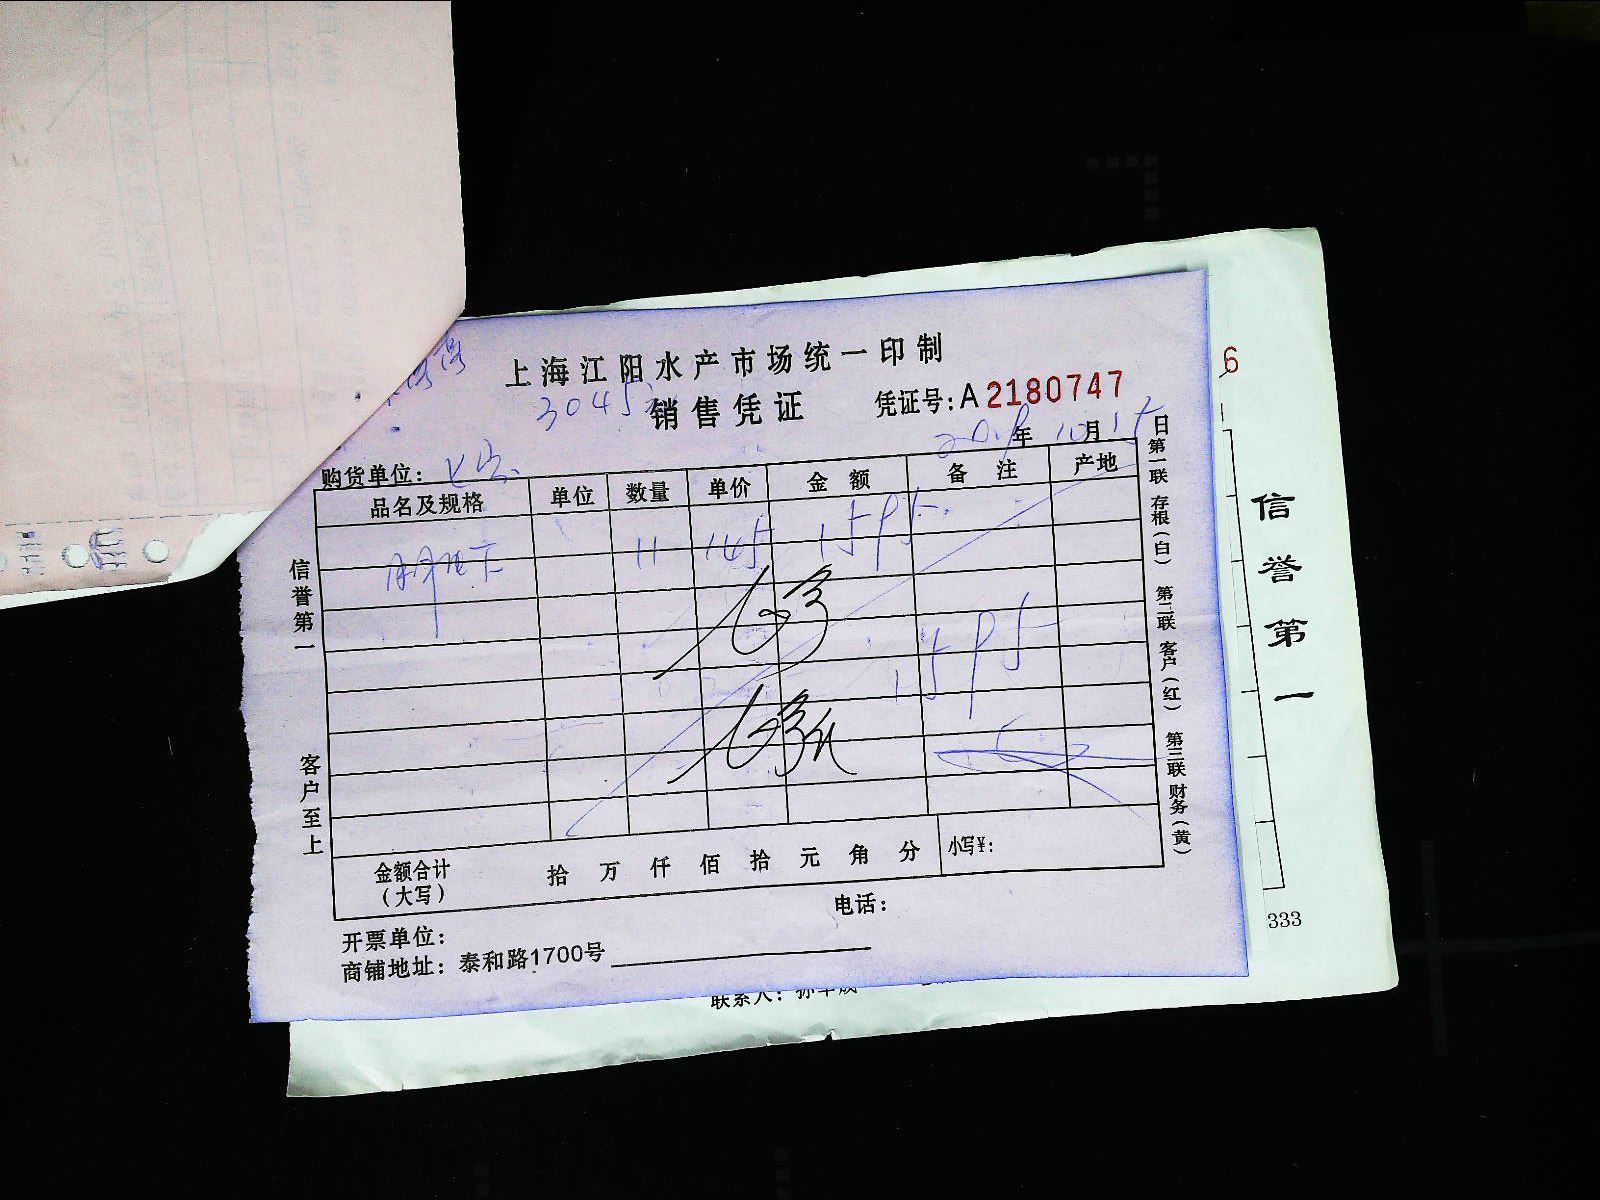 上海江阳水产市场统一印制
3045
销售凭证
凭证号:A 2180747
年 10月15日
购货单位:
品名及规格 单位 数量 单价 金额 备注 产地
11 145 1595.
1595
金额合计
(大写)
拾 万 仟 佰 拾 元 角 分 小写¥:
开票单位: 电话:
商铺地址: 泰和路1700号
信誉第一
客户至上
第一联 存根(白) 第二联 客户(红) 第三联 财务(黄)
6
信誉第一
333
联系人: